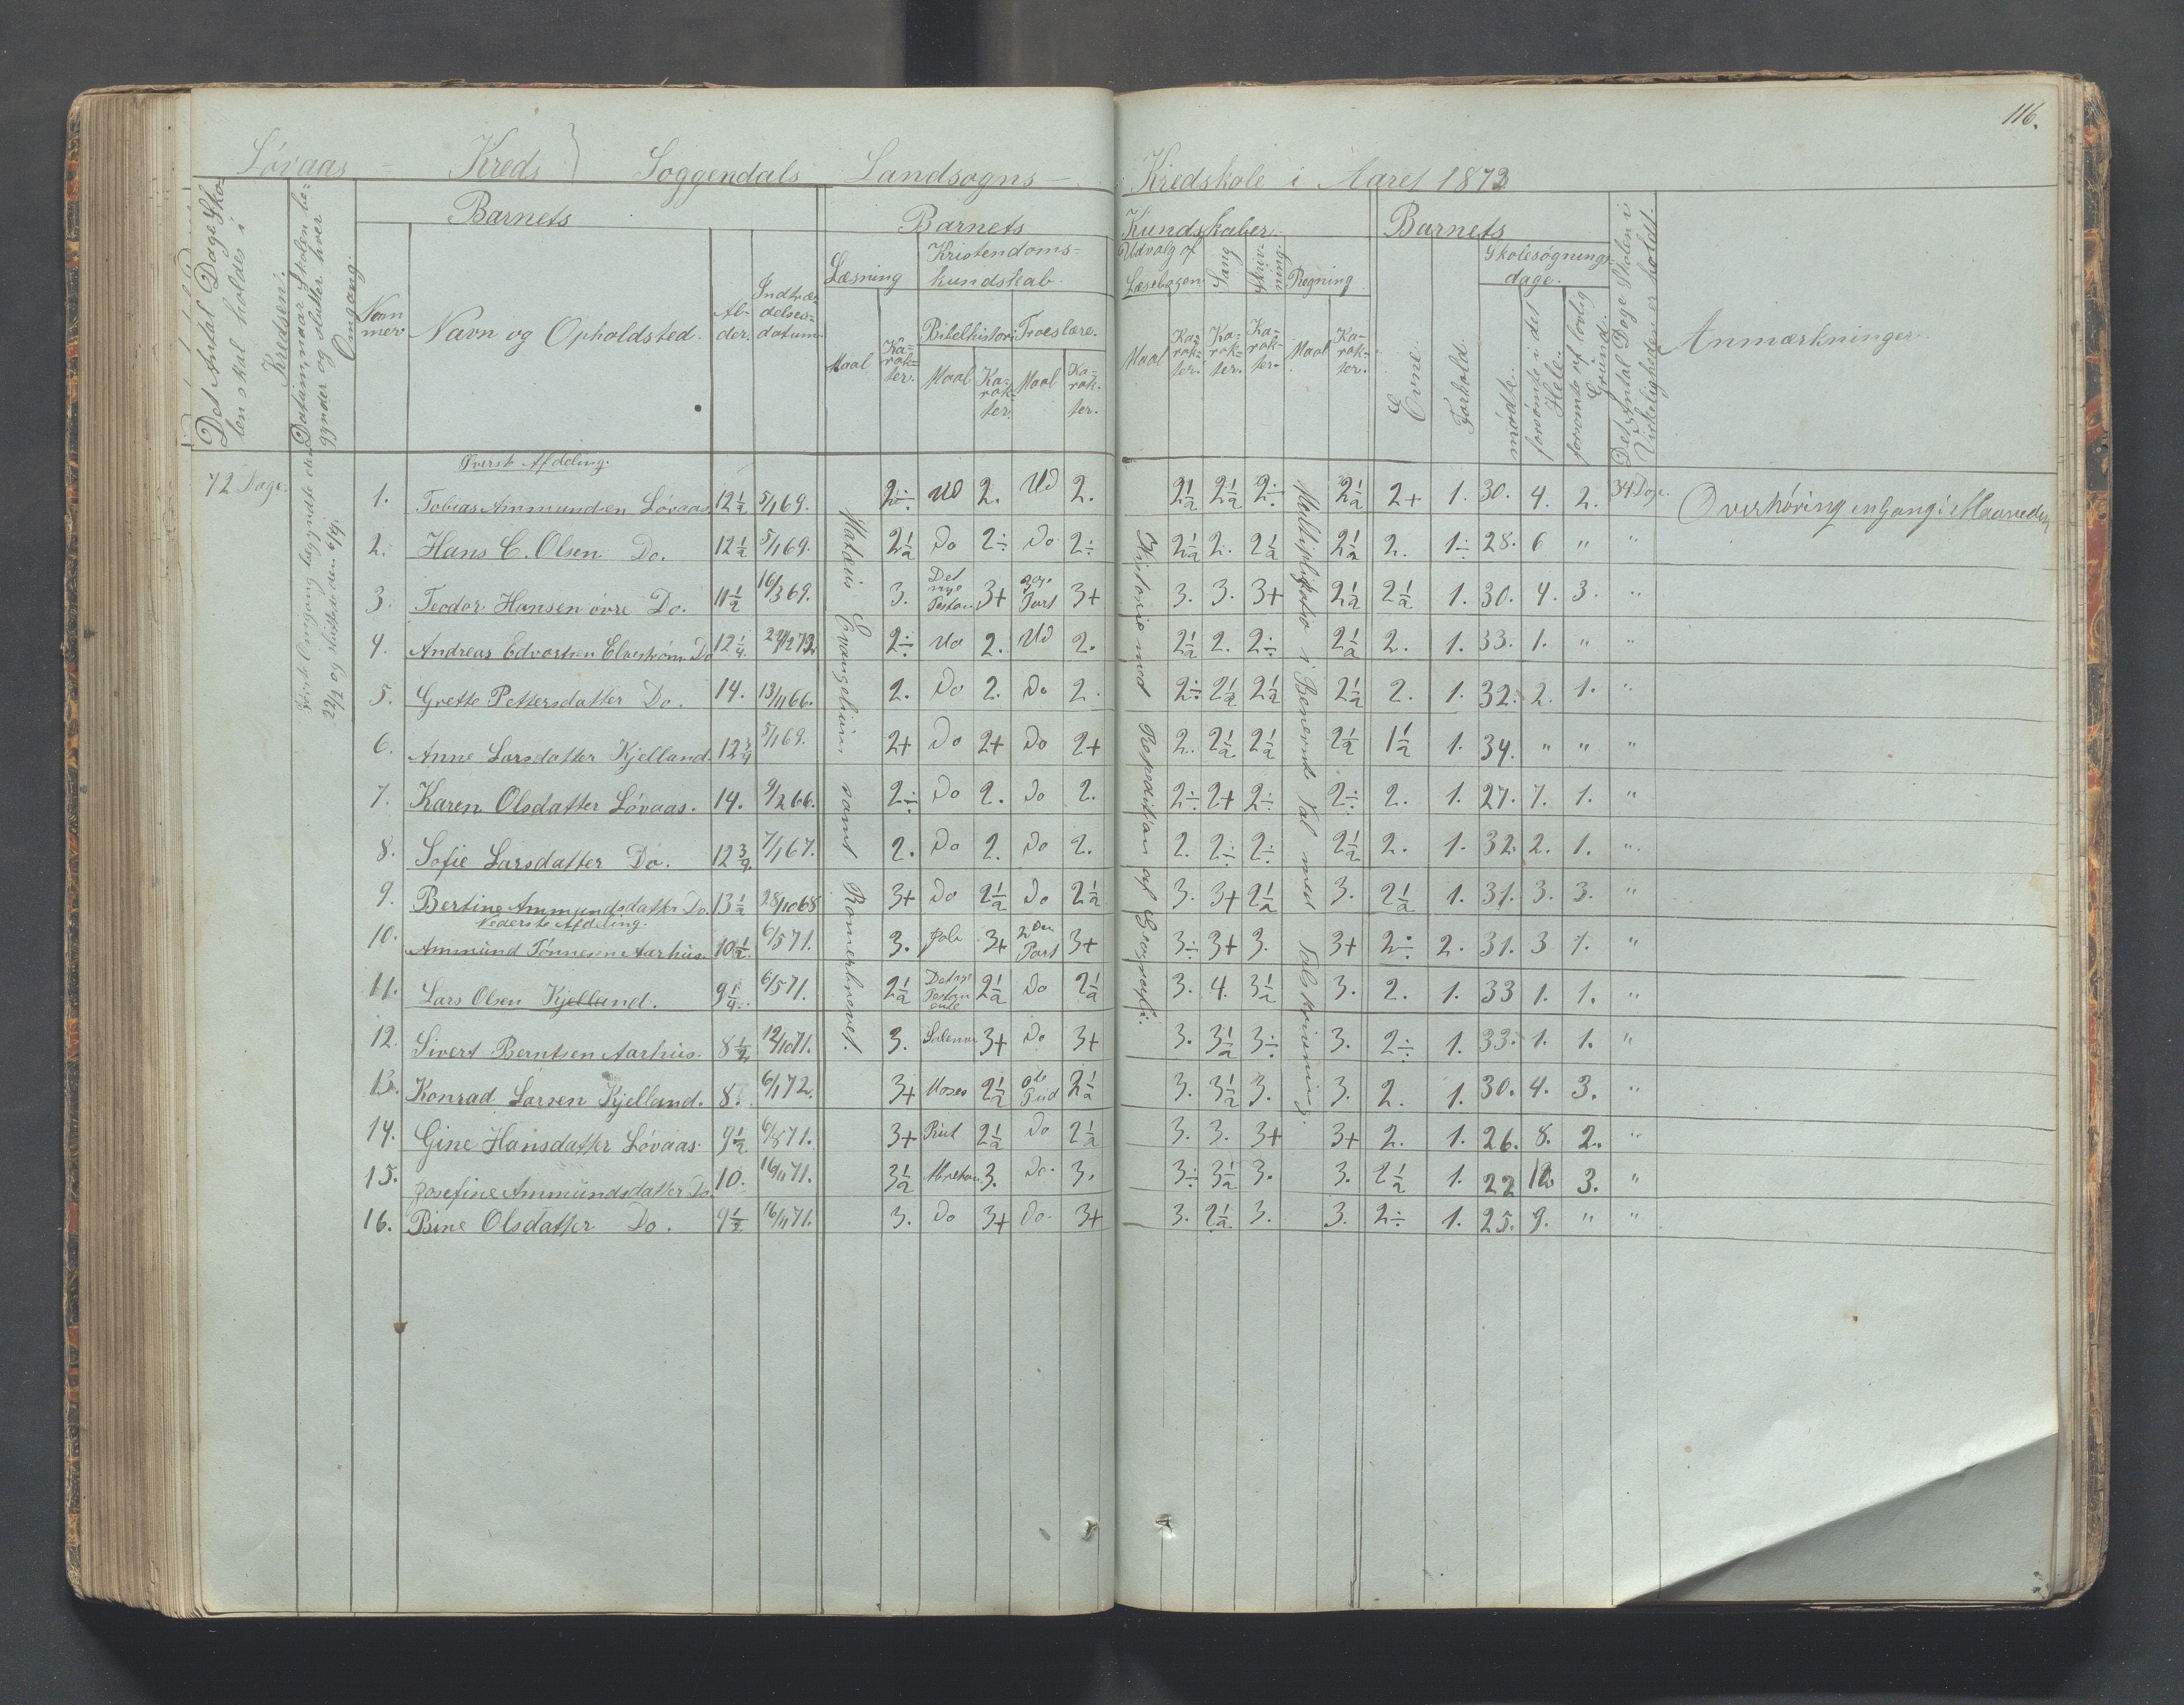 116.
Løvaas = Kreds } Soggendals Landsogns = Kredskole i Aaret 1873
Det Antal Dage Skolen skal holdes i Kredsen.
Datum, naar Skolen begynder og slutter hver Omgang.
Barnets
Nummer
Navn og Opholdsted.
Alder.
Indtrædelsesdatum.
Barnets Kundskaber.
Læsning
Kristendomskundskab.
Bibelhistorie
Troeslære.
Udvalg af Læsebogen
Sang
Skrivning.
Regning
Maal Karakter. Maal Karakter Maal Karakter. Maal Karakter. Karakter. Karakter. Maal Karakter.
Barnets
Evne. Forhold.
Skolesøgningsdage.
mødte. forsømte i det Hele. forsømte af lovlig Grund.
Det Antal Dage Skolen i Virkeligheden er holdt.
Anmærkninger.
72 Dage.
Første Omgang begyndte den 22/2 og sluttede den 6/4.
Mateus Evangelium samt Romerbrevet.
Historie med Repedition af Geografi.
Multiplikatio i Benevnte Tal med Talskrivning.
Øverste Afdeling.
1. Tobias Ammundsen Løvaas. 12 1/2 5/1 69. 2÷ Ud 2. Ud 2. 2 1/2 2 1/2 2÷ 2 1/2 2+ 1. 30. 4. 2. 34 Dage. Overhøring en Gang i Maaneden
2. Hans C. Olsen Do. 12 1/2 5/1 69. 2 1/2 Do 2÷ Do 2÷ 2 1/2 2. 2 1/2 2 1/2 2. 1÷ 28. 6 " "
3. Teodor Hansen øvre Do. 11 1/2 16/3 69. 3. Det nye Testam 3+ Part 3+ 3. 3. 3+ 2 1/2 2 1/2 1. 30. 4. 3. "
4. Andreas Edvartsen Elvestrøm Do 12 1/4 2. Ud 2. Ud 2. 2 1/2 2. 2÷ 2 1/2 2. 1. 33. 1. " "
5. Grette Pettersdatter Do. 14. 13/11 66. 2. Do 2. Do 2. 2÷ 2 1/2 2 1/2 2 1/2 2. 1. 32. 2. 1. "
6. Anne Larsdatter Kjelland. 12 3/4 5/1 69. 2+ Do 2+ Do 2+ 2. 2 1/2 2 1/2 2 1/2 1 1/2 1. 34. " " "
7. Karen Olsdatter Løvaas. 14. 9/2 66. 2÷ Do 2. Do 2. 2÷ 2+ 2÷ 2÷ 2. 1. 27. 7. 1. "
8. Sofie Larsdatter Do. 12 3/4 7/1 67. 2. Do 2. Do 2. 2. 2÷ 2÷ 2 1/2 2. 1. 32. 2. 1. "
9. Bertine Ammundsdatter Do. 13 1/2 28/10 68 3+ Do 2 1/2 Do 2 1/2 3. 3+ 2 1/2 3. 2 1/2 1. 31. 3. 3. "
Nederste Afdeling.
10. Ammund Tønnesen Aarhus. 10 1/2. 6/5 71. 3. 3+ 2den Part 3+ 3÷ 3+ 3. 3+ 2÷ 2. 31. 3 1. "
11. Lars Olsen Kjelland. 9 1/4. 6/5 71. 2 1/2 Det nye Testamente 2 1/2 Do 2 1/2 3. 4. 3 1/2 3. 2. 1. 33 1. 1. "
12. Sivert Berntsen Aarhus. 8 1/2 12/10 71. 3. 3+ Do 3+ 3. 3 1/2 3÷ 3. 2÷ 1. 33. 1. 1. "
13. Konrad Larsen Kjelland. 8. 6/1 72. 3+ Moses 2 1/2 om Gud 2 1/2 3. 3 1/2 3. 3. 2. 1. 30. 4. 3. "
14. Gine Hansdatter Løvaas. 9 1/2 6/5 71. 3+ Rut 2 1/2 Do 2 1/2 3. 3. 3+ 3+ 2. 1. 26. 8. 2. "
15. Josefine Ammundsdatter Do. 10. 16/11 71. 3 1/2 3. Do. 3. 3÷ 3 1/2 3. 3. 2 1/2 1. 22 12 3. "
16. Bine Olsdatter Do. 9 1/2 16/11 71. 3. Do 3+ Do. 3+ 3. 2 1/2 3. 3. 2÷ 1. 25. 9. " "